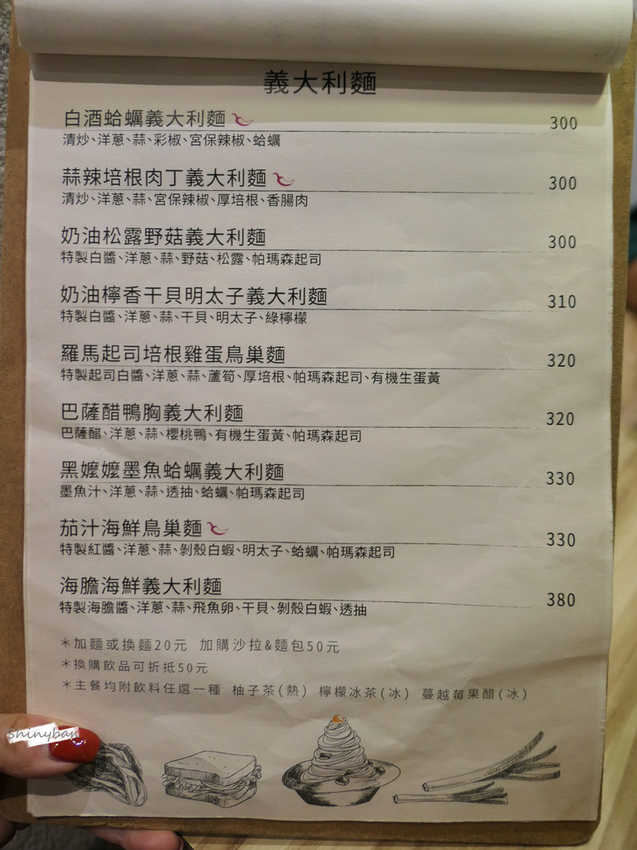 義大利麵
白酒蛤蠣義大利麵 300
清炒、洋蔥、蒜、彩椒、宮保辣椒、蛤蠣
蒜辣培根肉丁義大利麵 300
清炒、洋蔥、蒜、宮保辣椒、厚培根、香腸肉
奶油松露野菇義大利麵 300
特製白醬、洋蔥、蒜、野菇、松露、帕瑪森起司
奶油檸香干貝明太子義大利麵 310
特製白醬、洋蔥、蒜、干貝、明太子、綠檸檬
羅馬起司培根雞蛋鳥巢麵 320
特製起司白醬、洋蔥、蒜、蘆筍、厚培根、帕瑪森起司、有機生蛋黃
巴薩醋鴨胸義大利麵 320
巴薩醋、洋蔥、蒜、櫻桃鴨、有機生蛋黃、帕瑪森起司
黑嬤嬤墨魚蛤蠣義大利麵 330
墨魚汁、洋蔥、蒜、透抽、蛤蠣、帕瑪森起司
茄汁海鮮鳥巢麵 330
特製紅醬、洋蔥、蒜、剝殼白蝦、明太子、蛤蠣、帕瑪森起司
海膽海鮮義大利麵 380
特製海膽醬、洋蔥、蒜、飛魚卵、干貝、剝殼白蝦、透抽
＊加麵或換麵20元 加購沙拉&麵包50元
＊換購飲品可折抵50元
＊主餐均附飲料任選一種 柚子茶(熱) 檸檬冰茶(冰) 蔓越莓果醋(冰)
shinybar